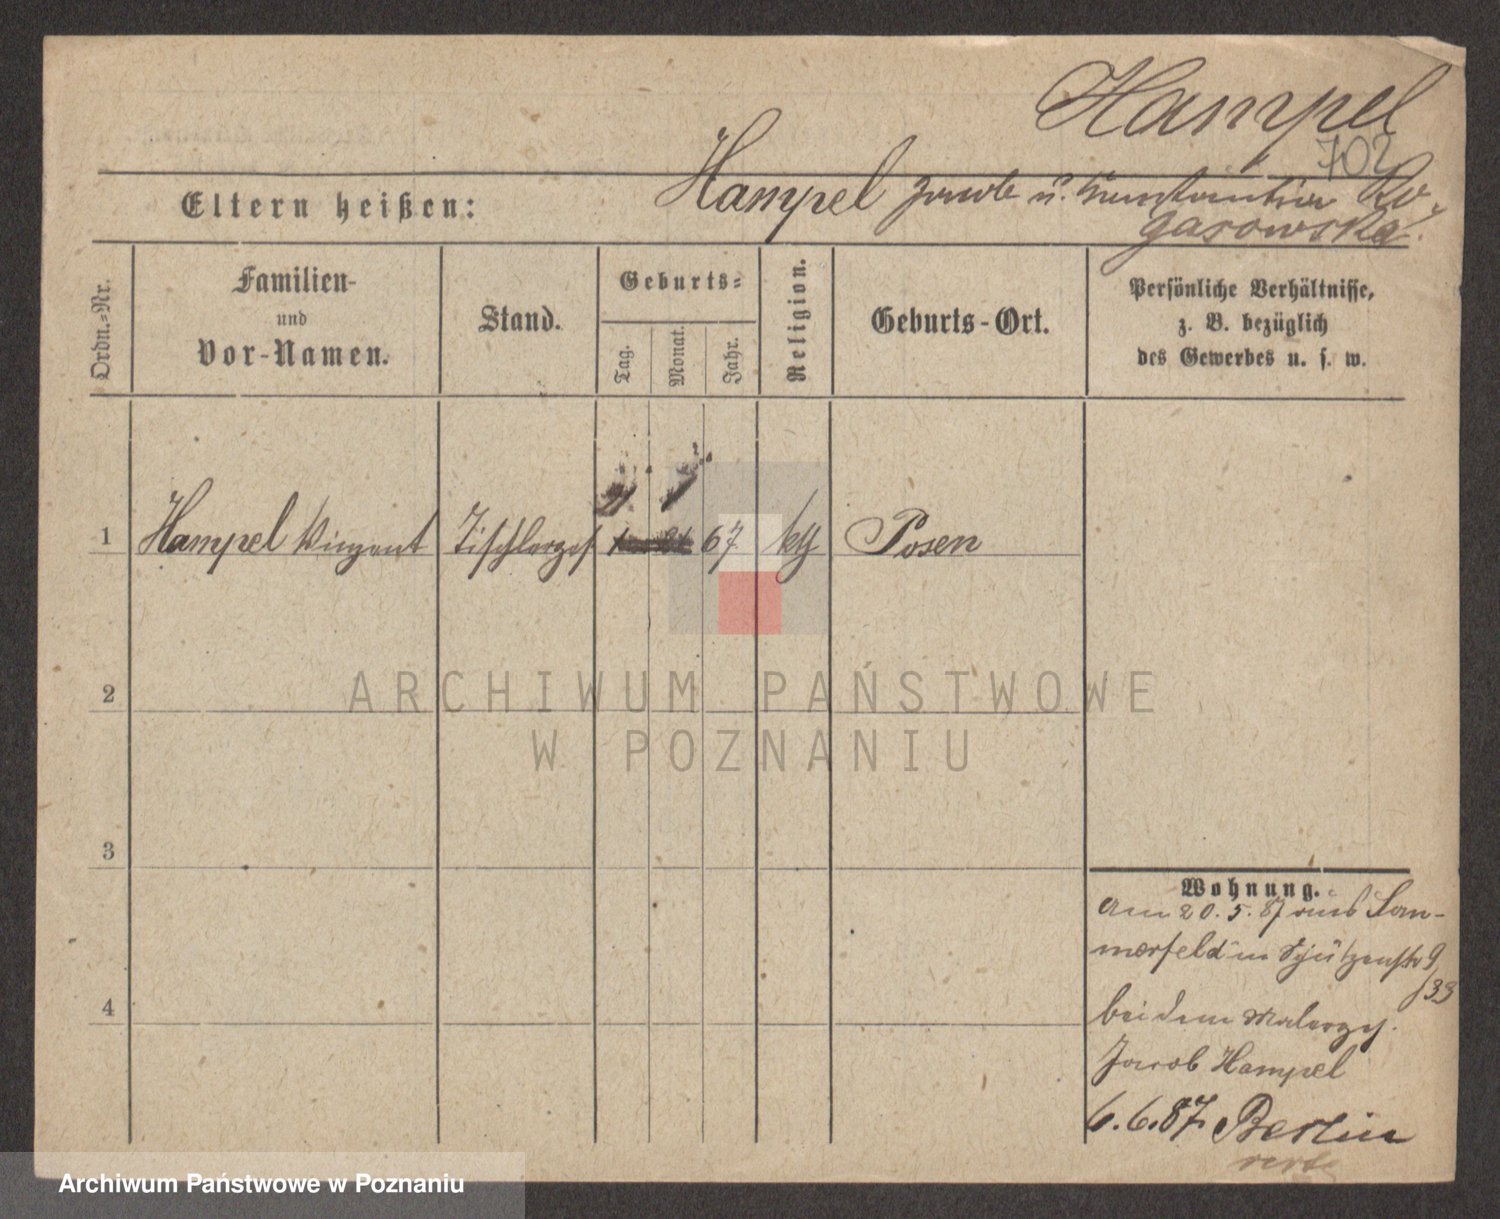 Hampel
702
Eltern heißen: Hampel Jacob u. Constantia Ro-
gasowska.
Ordn.-Nr.
Familien-
und
Vor-Namen.
Stand.
Geburts-
Tag.
Monat.
Jahr.
Religion.
Geburts-Ort.
Persönliche Verhältnisse,
z. B. bezüglich
des Gewerbes u. s. w.
1 Hampel Vinzent Tischlerges 67 kth Posen
2
3
4
Wohnung.
Am 20. 5. 87 aus Som-
merfeld in Schützenstr 9
/33
bei dem Malerges.
Jacob Hampel
6.6.87 Berlin
ARCHIWUM PAŃSTWOWE
W POZNANIU
Archiwum Państwowe w Poznaniu